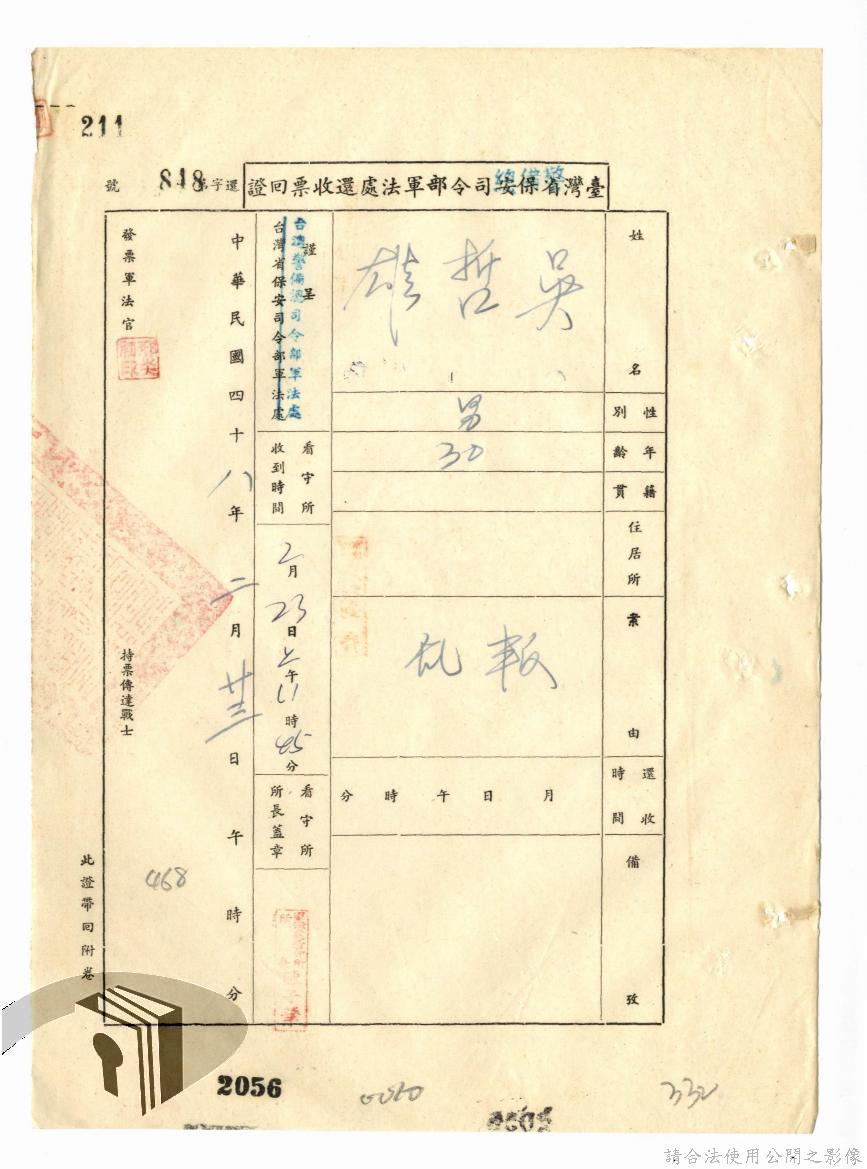 211
臺灣省保安司令部軍法處還收票回證
警備總
還字第848號
姓名
吳哲雄
性別
男
年齡
30
籍貫
住居所
案由
叛亂
還收時間
月 日 午 時 分
備攷
謹呈
台灣省保安司令部軍法處
台灣警備總司令部軍法處
看守所收到時間
2月23日上午11時45分
看守所所長蓋章
中華民國四十八年二月廿三日 午 時 分
發票軍法官
持票傳達戰士
此證帶回附卷
468
2056
332
請合法使用公開之影像